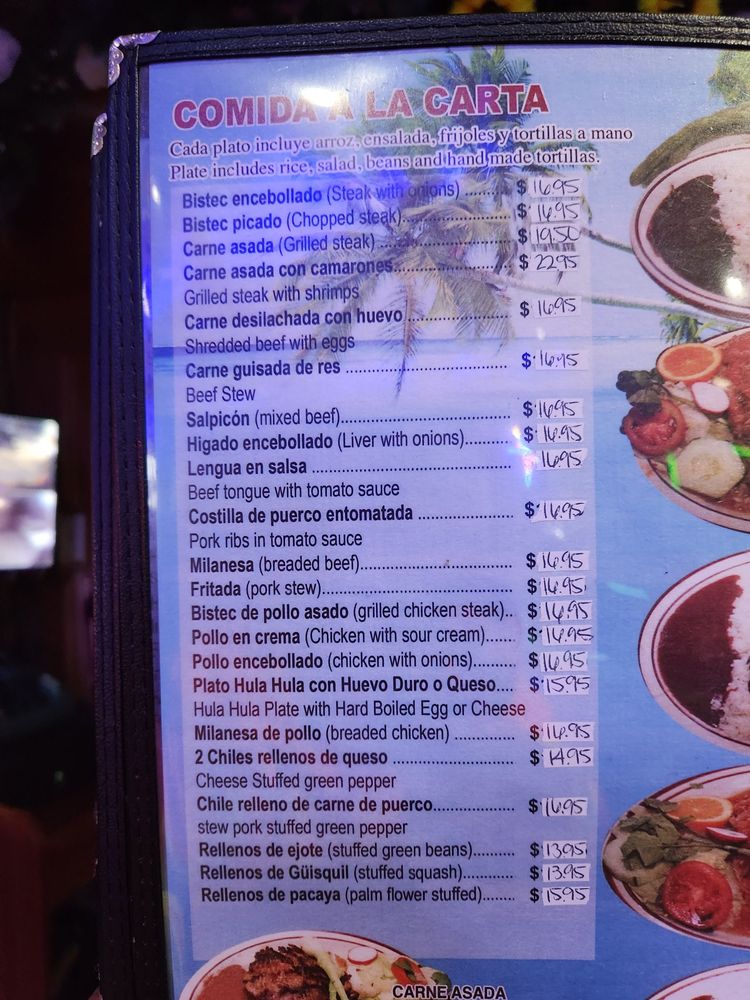 COMIDA A LA CARTA
Cada plato incluye arroz, ensalada, frijoles y tortillas a mano
Plate includes rice, salad, beans and hand made tortillas.
Bistec encebollado (Steak with onions) ......... $ 16.95
Bistec picado (Chopped steak)......................... $ 16.95
Carne asada (Grilled steak) ............................ $ 19.50
Carne asada con camarones........................ $ 22.95
Grilled steak with shrimps
Carne desilachada con huevo ...................... $ 16.95
Shredded beef with eggs
Carne guisada de res .................................... $ 16.95
Beef Stew
Salpicón (mixed beef)..................................... $ 16.95
Higado encebollado (Liver with onions).......... $ 16.95
Lengua en salsa ............................................ 16.95
Beef tongue with tomato sauce
Costilla de puerco entomatada ..................... $ 16.95
Pork ribs in tomato sauce
Milanesa (breaded beef)................................. $ 16.95
Fritada (pork stew).......................................... $ 16.95
Bistec de pollo asado (grilled chicken steak).. $ 16.95
Pollo en crema (Chicken with sour cream)...... $ 16.95
Pollo encebollado (chicken with onions)......... $ 16.95
Plato Hula Hula con Huevo Duro o Queso.... $ 15.95
Hula Hula Plate with Hard Boiled Egg or Cheese
Milanesa de pollo (breaded chicken) ............. $ 16.95
2 Chiles rellenos de queso ........................... $ 14.95
Cheese Stuffed green pepper
Chile relleno de carne de puerco.................. $ 16.95
stew pork stuffed green pepper
Rellenos de ejote (stuffed green beans)......... $ 13.95
Rellenos de Güisquil (stuffed squash)............ $ 13.95
Rellenos de pacaya (palm flower stuffed)....... $ 15.95
CARNE ASADA